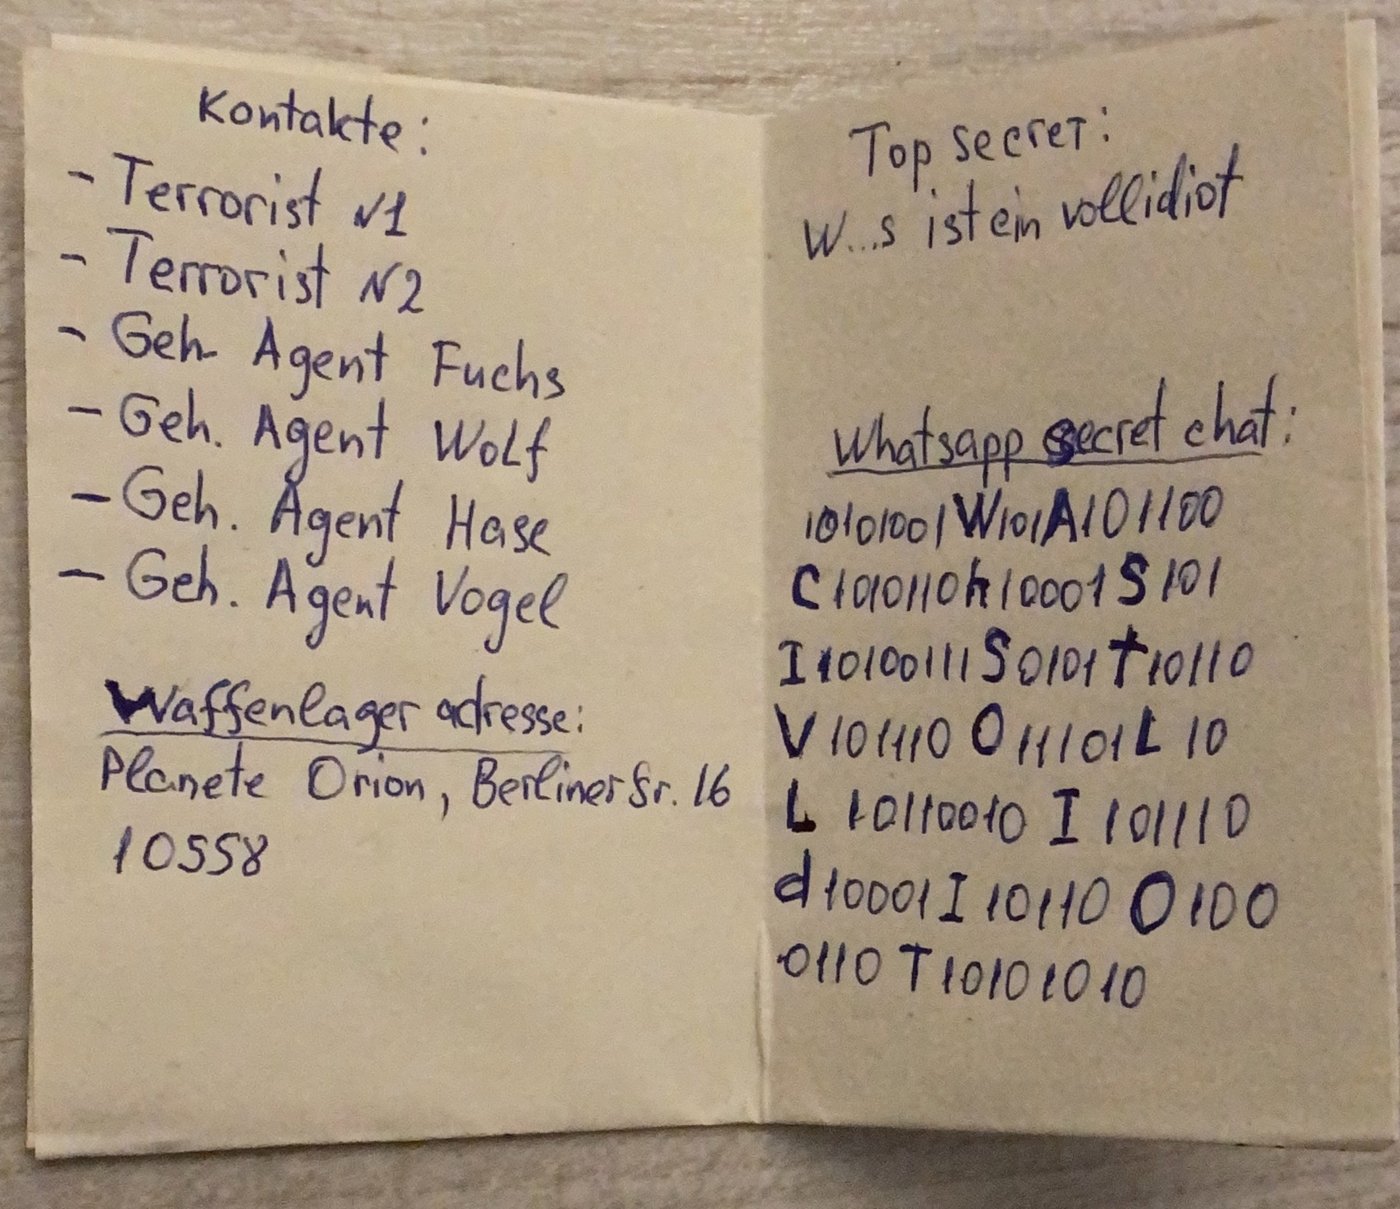 Kontakte:
- Terrorist N1
- Terrorist N2
- Geh. Agent Fuchs
- Geh. Agent Wolf
- Geh. Agent Hase
- Geh. Agent Vogel
Waffenlager adresse:
Planete Orion, Berliner Sr. 16
10558
Top secret:
W...s ist ein vollidiot
Whatsapp secret chat:
10101001W101A101100
C1010110h10001S101
I10100111S0101t10110
V101110O11101L10
L10110010I101110
d10001I10110O100
0110T10101010